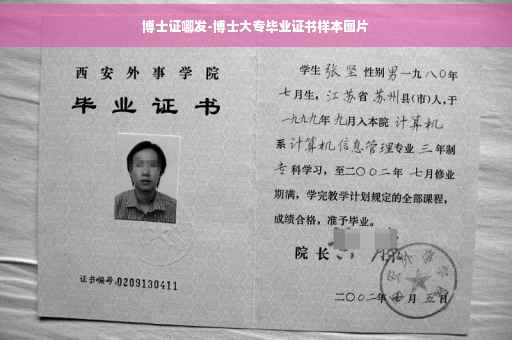 博士证哪发-博士大专毕业证书样本图片
西安外事学院
毕业证书
证书编号:0209130411
学生 张坚 性别 男 一九八〇年
七月生，江苏省 苏州县(市)人，于
一九九九年 九月入本院 计算机
系 计算机信息管理专业 三 年制
专 科学习，至二〇〇二年 七月修业
期满，学完教学计划规定的全部课程，
成绩合格，准予毕业。
院长
二〇〇二年 月 五日